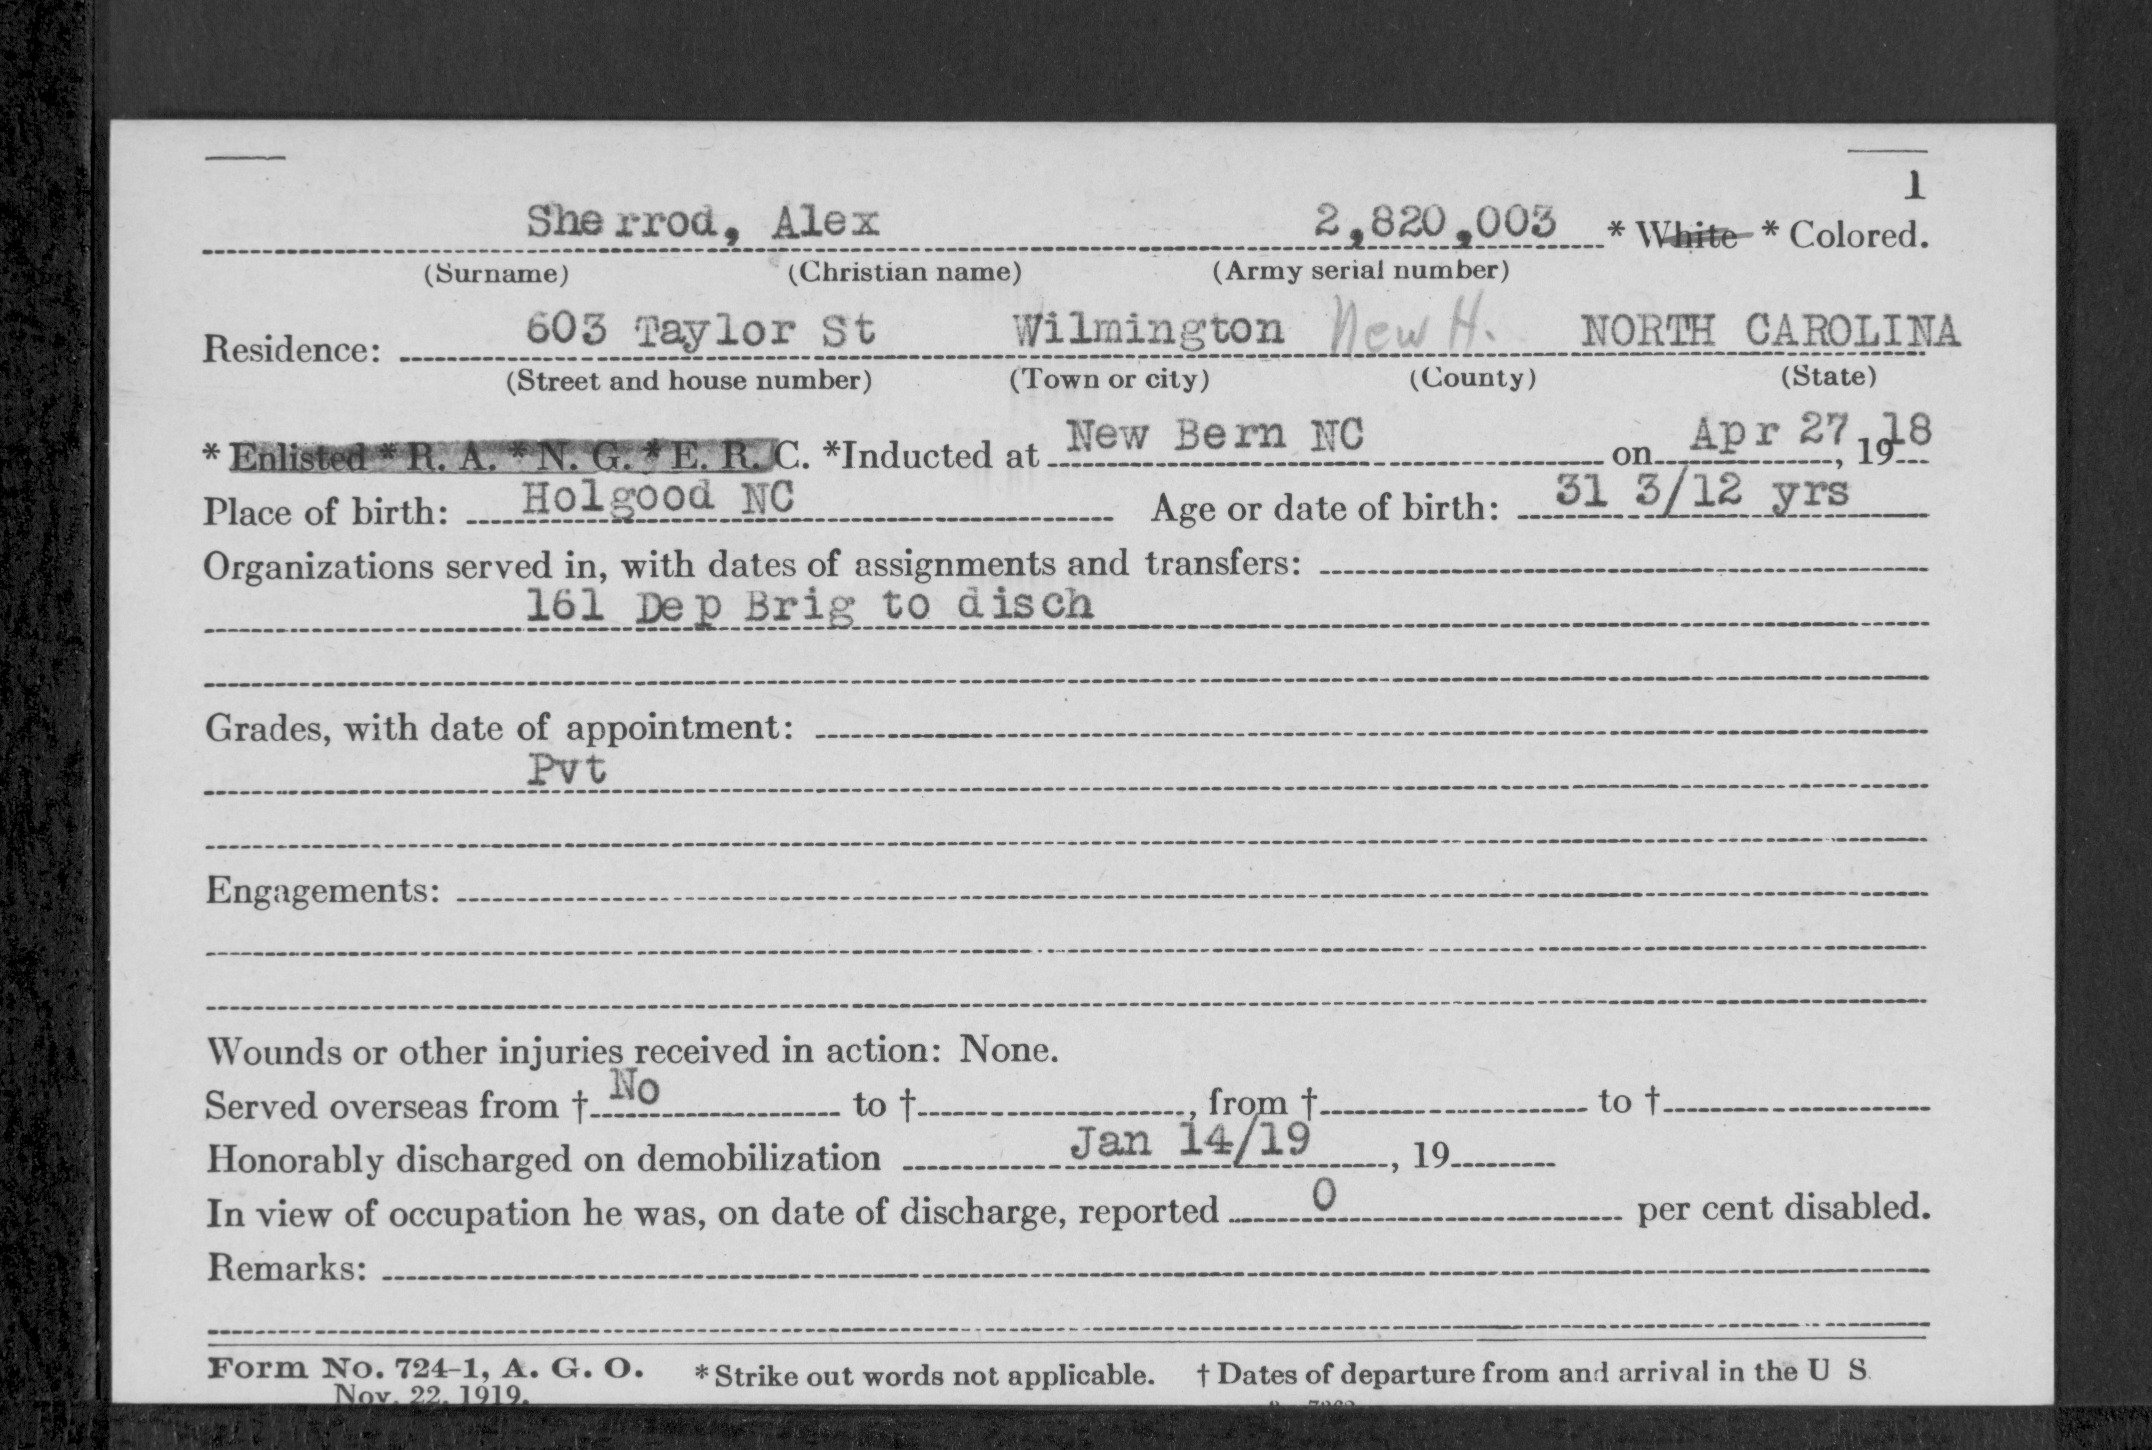 1
Sherrod, Alex 2,820,003 * White * Colored.
(Surname) (Christian name) (Army serial number)
Residence: 603 Taylor St Wilmington New H. NORTH CAROLINA
(Street and house number) (Town or city) (County) (State)
* Enlisted * R. A. * N. G. * E. R. C. *Inducted at New Bern NC on Apr 27, 1918
Place of birth: Holgood NC Age or date of birth: 31 3/12 yrs
Organizations served in, with dates of assignments and transfers:
161 Dep Brig to disch
Grades, with date of appointment:
Pvt
Engagements:
Wounds or other injuries received in action: None.
Served overseas from † No to † , from † to †
Honorably discharged on demobilization Jan 14/19 , 19
In view of occupation he was, on date of discharge, reported 0 per cent disabled.
Remarks:
Form No. 724-1, A. G. O. * Strike out words not applicable. † Dates of departure from and arrival in the U S
Nov. 22, 1919.